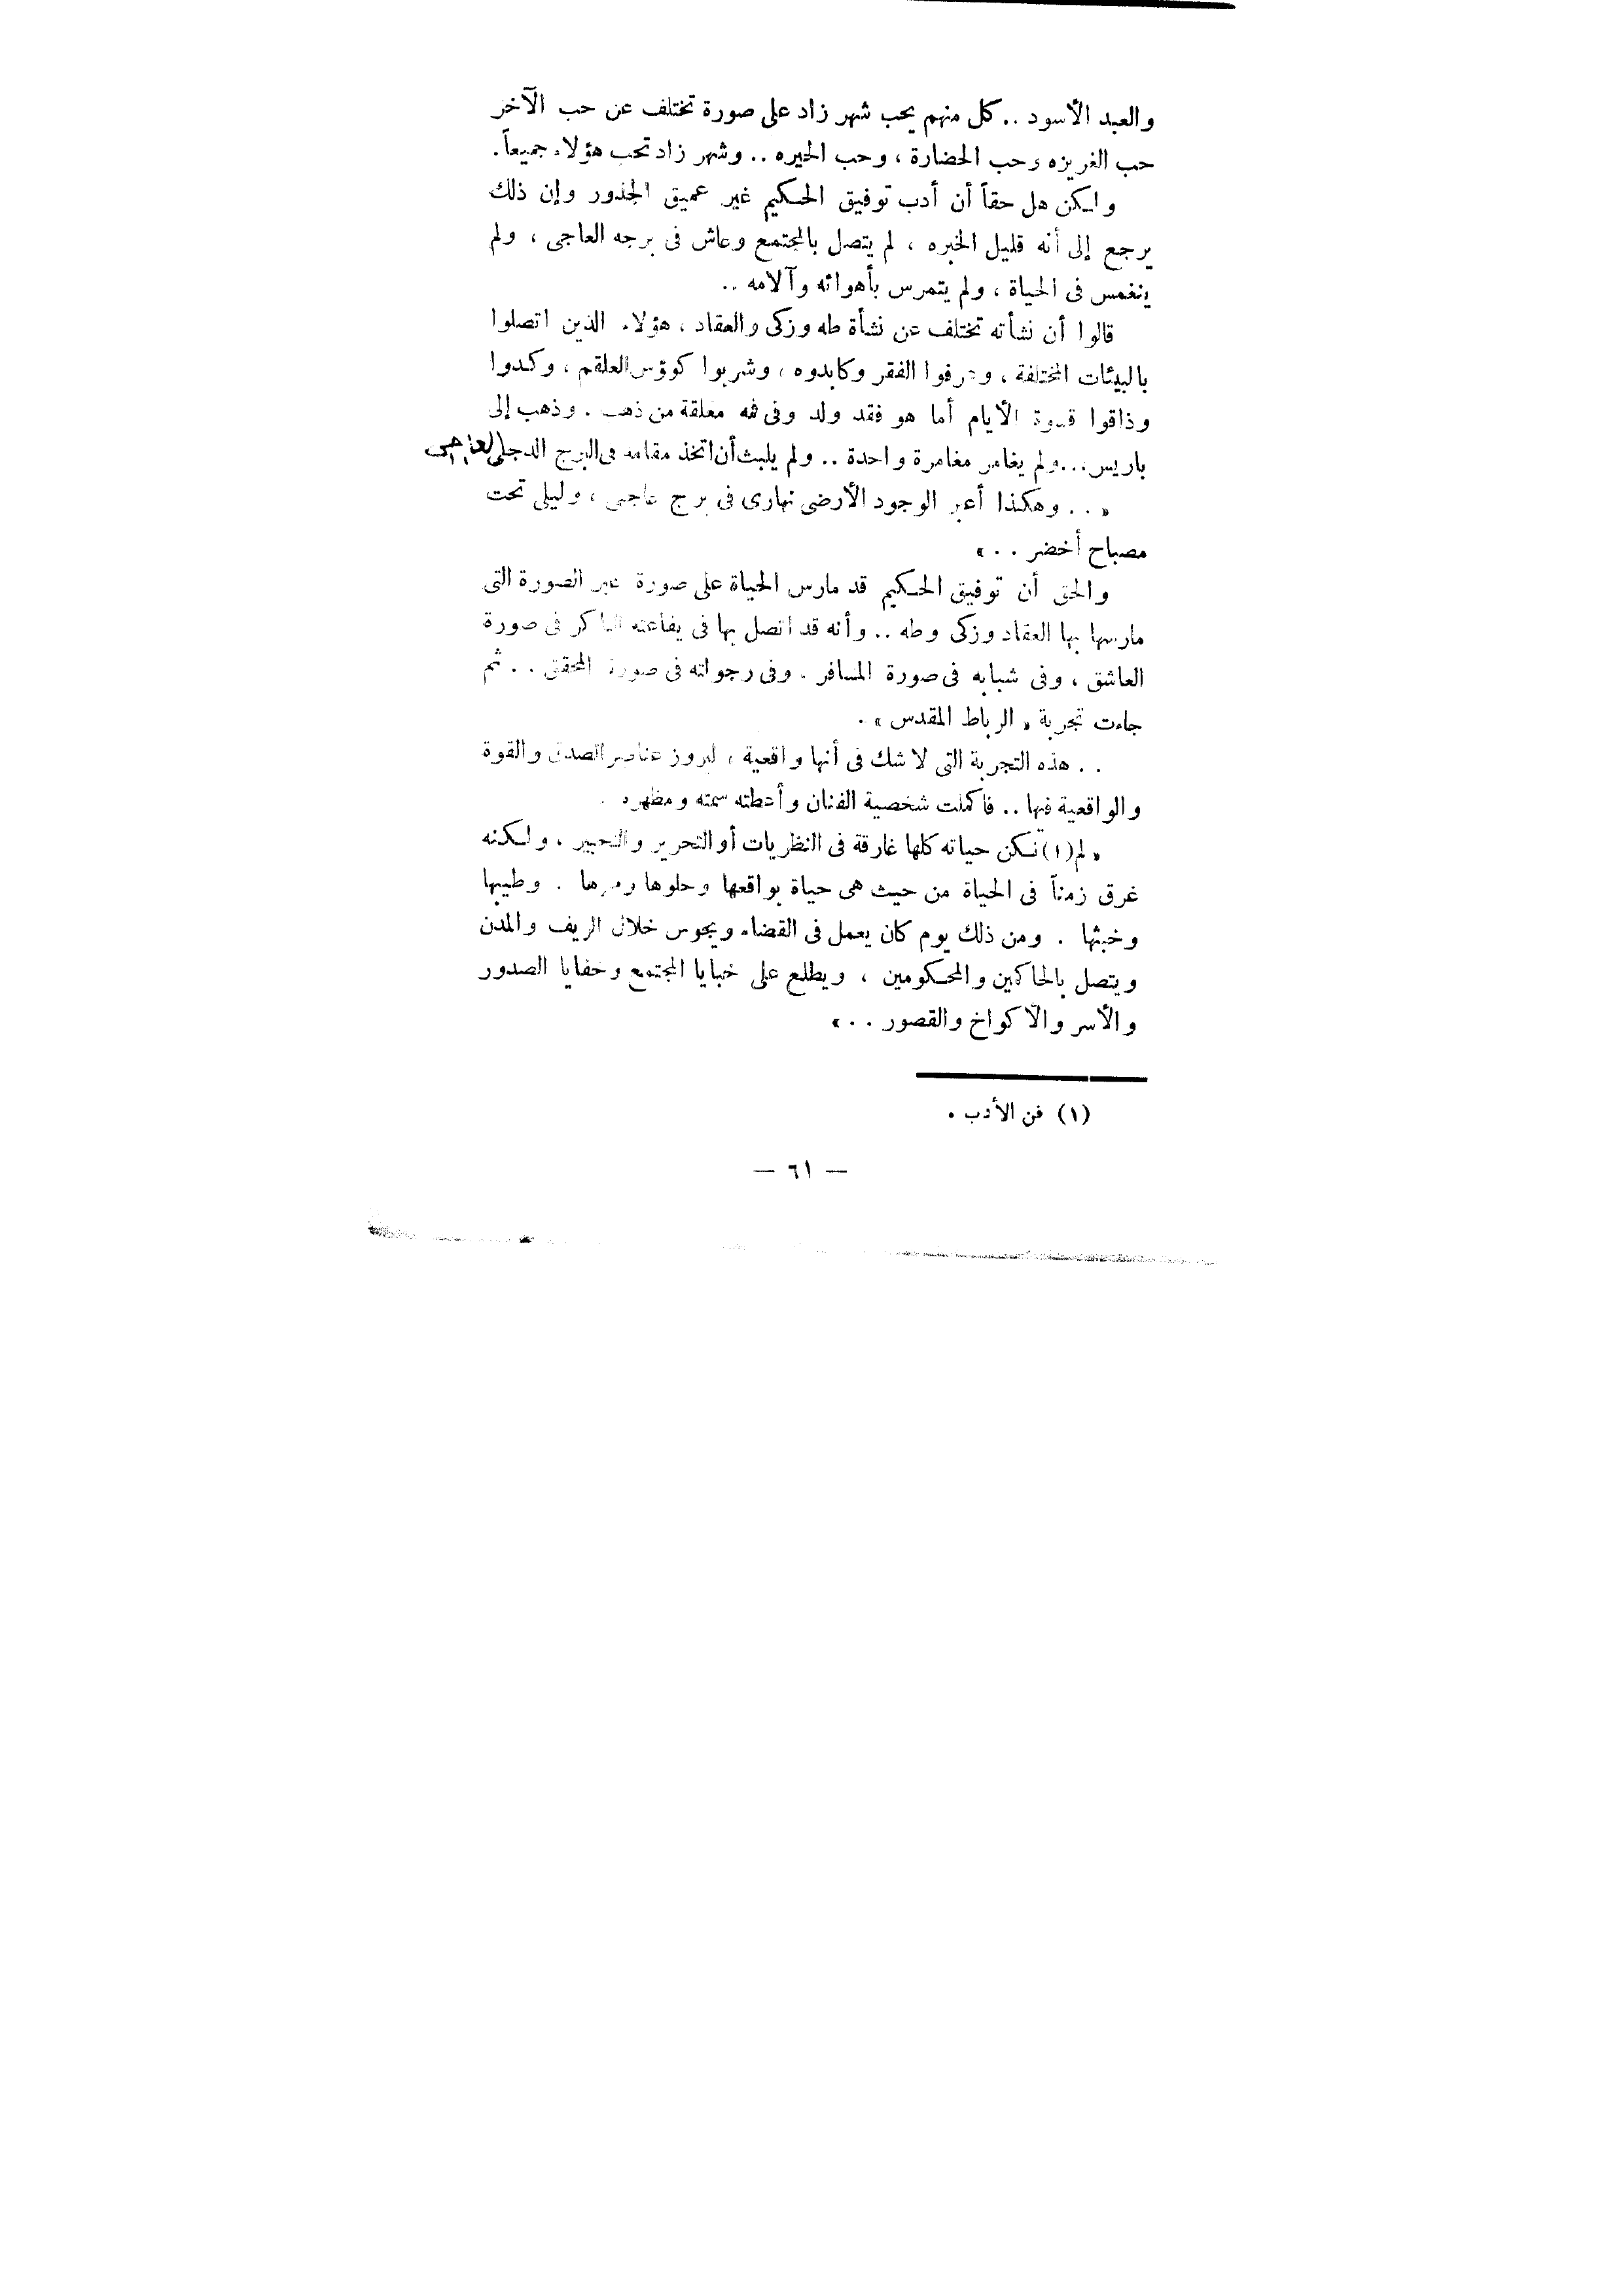 والعبد الأسود .. كل منهم يحب شهر زاد على صورة تختلف عن حب الآخر
حب الغريزه وحب الحضارة ، وحب الخيره .. وشهر زاد تحب هؤلاء جميعاً .
ولكن هل حقاً أن أدب توفيق الحكيم غير عميق الجذور وإن ذلك
يرجع إلى أنه قليل الخبره ، لم يتصل بالمجتمع وعاش فى برجه العاجى ، ولم
ينغمس فى الحياة ، ولم يتمرس بأهوائه وآلامه ..
قالوا أن نشأته تختلف عن نشأة طه وزكى والعقاد ، هؤلاء الذين اتصلوا
بالبيئات المختلفة ، وعرفوا الفقر وكابدوه ، وشربوا كوؤس العلقم ، وكدوا
وذاقوا قسوة الأيام أما هو فقد ولد وفى فمه معلقة من ذهب . وذهب إلى
باريس ... ولم يغامر مغامرة واحدة .. ولم يلبث أن اتخذ مقامه فى البرج العاجى
« .. وهكذا أعبر الوجود الأرضى نهارى فى برج عاجى ، وليلى تحت
مصباح أخضر .. »
والحق أن توفيق الحكيم قد مارس الحياة على صورة غير الصورة التى
مارسها بها العقاد وزكى وطه .. وأنه قد اتصل بها فى يفاعته الباكر فى صورة
العاشق ، وفى شبابه فى صورة المسافر . وفى رجولته فى صورة المحقق .. ثم
جاءت تجربة « الرباط المقدس » .
.. هذه التجربة التى لا شك فى أنها واقعية ، لبروز عناصر الصدق والقوة
والواقعية فيها .. فاكملت شخصية الفنان وأعطته سمته ومظهره .
« لم (١) تكن حياته كلها غارقة فى النظريات أو التحرير والتحبير ، ولكنه
غرق زمناً فى الحياة من حيث هى حياة بواقعها وحلوها ومرها . وطيبها
وخبثها . ومن ذلك يوم كان يعمل فى القضاء ويجوس خلال الريف والمدن
ويتصل بالحاكمين والمحكومين ، ويطلع على خبايا المجتمع وخفايا الصدور
والأسر والأكواخ والقصور .. »
(١) فن الأدب .
— ٦١ —